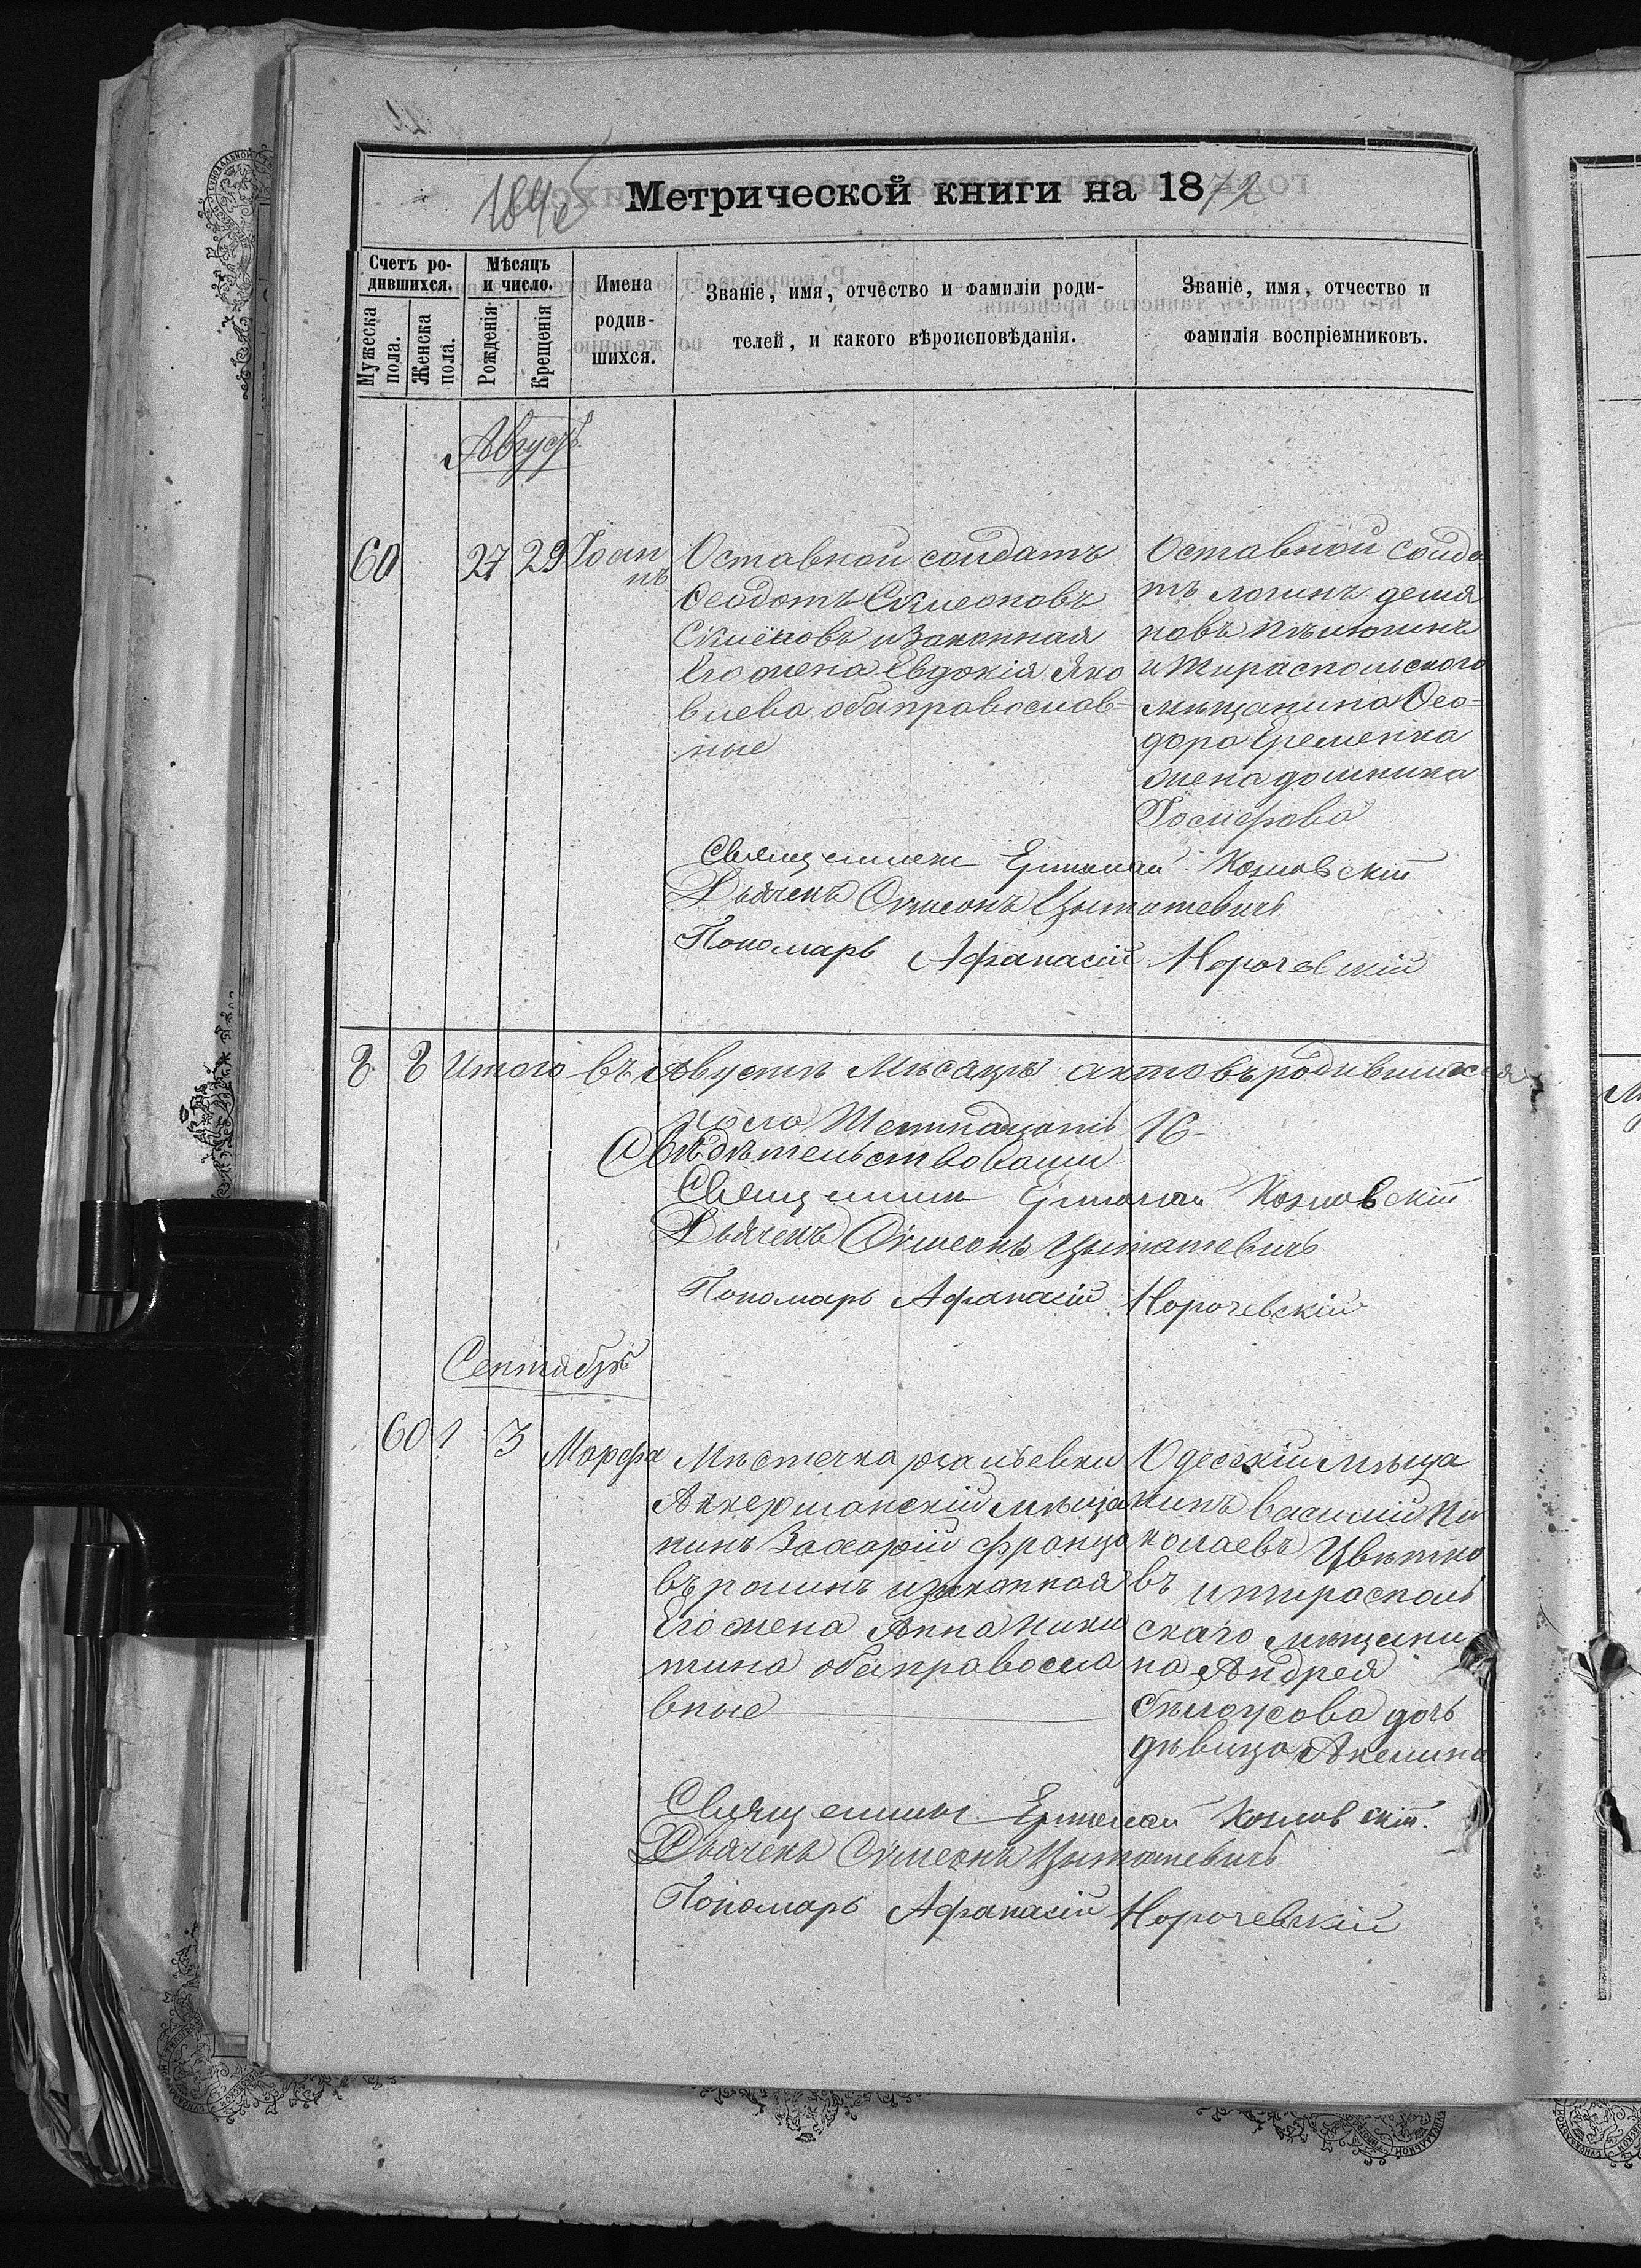 Метрической книги на 1872
Счетъ родившихся.
Мѣсяцъ и число.
Мужеска пола.
Женска пола.
Рожденія
Крещенія
Имена родившихся.
Званіе, имя, отчество и фамиліи роди-
телей, и какого вѣроисповѣданія.
Званіе, имя, отчество и
фамилія воспріемниковъ.
Августъ
60 27 29 Іоан
нъ
Оставной солдатъ
Ѳеодотъ Симеоновъ
и законная
Его жена Евдокія Яко
влева оба православ-
ные
Оставной солда
тъ логинъ демя
новъ
и Тираспольского
мещанина Ѳео-
дора Еременка
жена домникa
Іосифова
Священникъ Ермолай Козловскій
Дьячекъ Симеонъ
Пономарь Афанасій
8 8 Итого въ Августѣ Мѣсяцѣ актовъ родившихся
число Шестнадцать 16
Свѣдѣтельствовали
Священникъ Ермолай Козловскій
Дьячекъ Симеонъ
Пономарь Афанасій
Сентябрь
60 1 3 Марфа
Мѣстечка
Аккерманскій мѣща
нинъ Захарій Францо
въ и законная
Его жена Анна Ники
тина оба православ
вные
Одесскій мѣща
нинъ василій Ни
колаевъ Цвѣтко
въ и тирасполь
скаго мещани
на Андрея
Бѣлоусова дочь
дѣвица Акелина
Священникъ Ермолай Козловскій.
Дьячекъ Симеонъ
Пономарь Афанасій